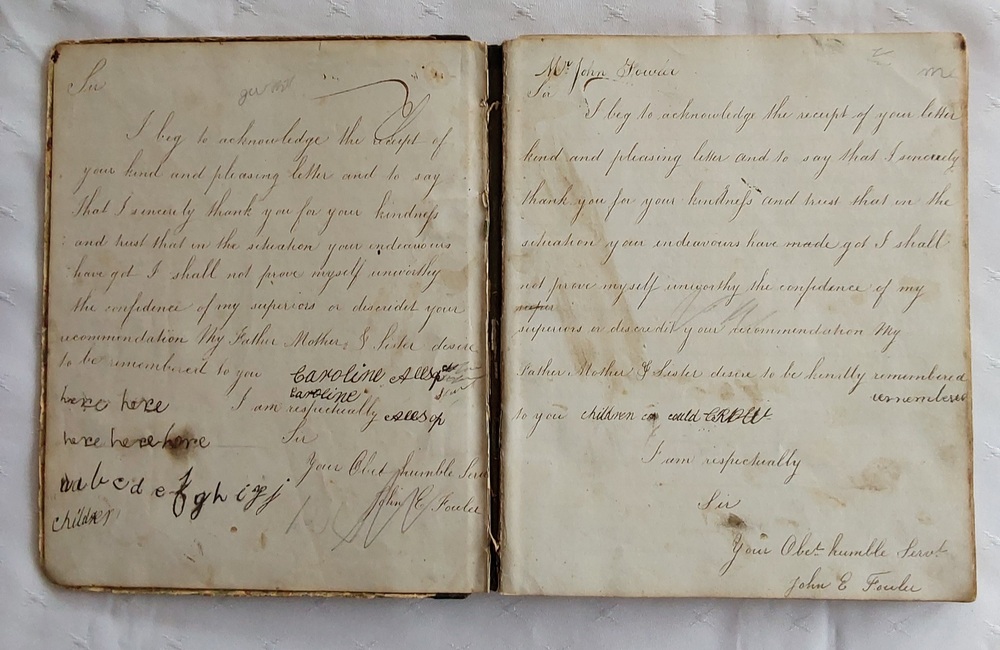 Sir
I beg to acknowledge the receipt of
your kind and pleasing letter and to say
that I sincerly thank you for your kindness
and trust that in the situation your endeavours
have got I shall not prove myself unworthy
the confidence of my superiors or discredit your
recommendation My Father Mother & Sister desire
to be remembered to you Caroline Allsop
Caroline
here here I am respectually Allsop
here here here Sir
Your Obet humble Serv
a b c d e f g h i j
John E Fowler
children
Mr John Fowler
Sir
I beg to acknowledge the receipt of your letter
kind and pleasing letter and to say that I sincerely
thank you for your kindness and trust that in the
situation your endeavours have made got I shall
not prove myself unworthy the confidence of my
superiors or discredit your recommendation My
Father Mother & Sister desire to be kindly remembered
remembered
to you children could
I am respectually
Sir
Your Obet humble Servt
John E Fowler